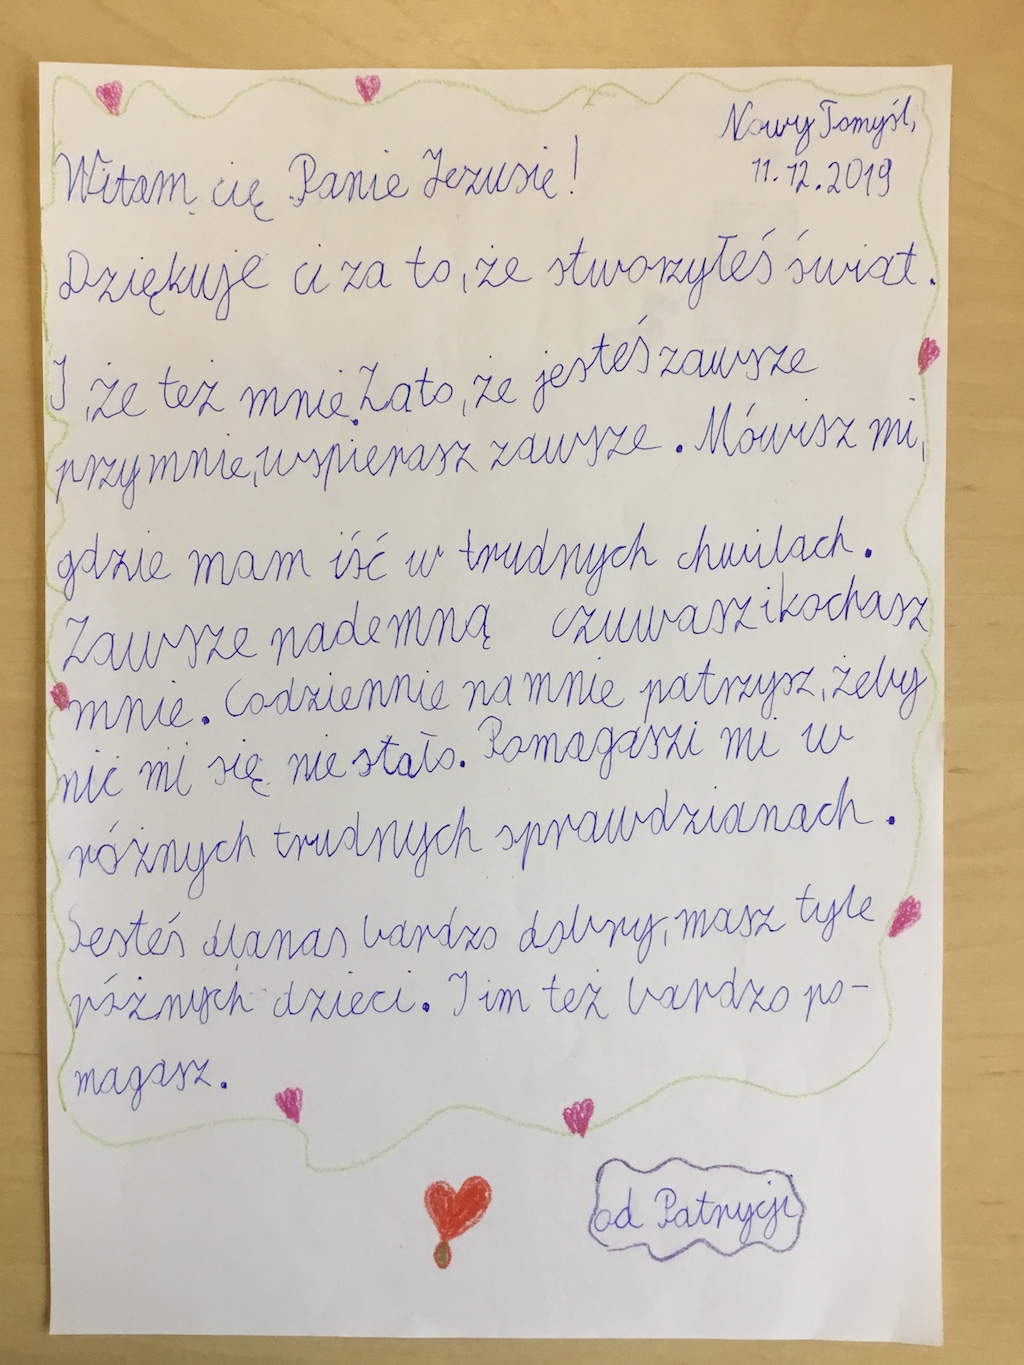 Nowy Tomyśl,
11.12.2019
Witam cię Panie Jezusię!
Dziękuje ci za to, że stworzyłeś świat.
I, że też mnie. Za to, że jesteś zawsze
przy mnie, wspierasz zawsze. Mówisz mi,
gdzie mam iść w trudnych chwilach.
Zawsze nademną czuwasz i kochasz
mnie. Codziennie na mnie patrzysz, żeby
nic mi się nie stało. Pomagaszi mi w
różnych trudnych sprawdzianach.
Jesteś dla nas bardzo dobry, masz tyle
różnych dzieci. I im też bardzo po-
magasz.
od Patrycji